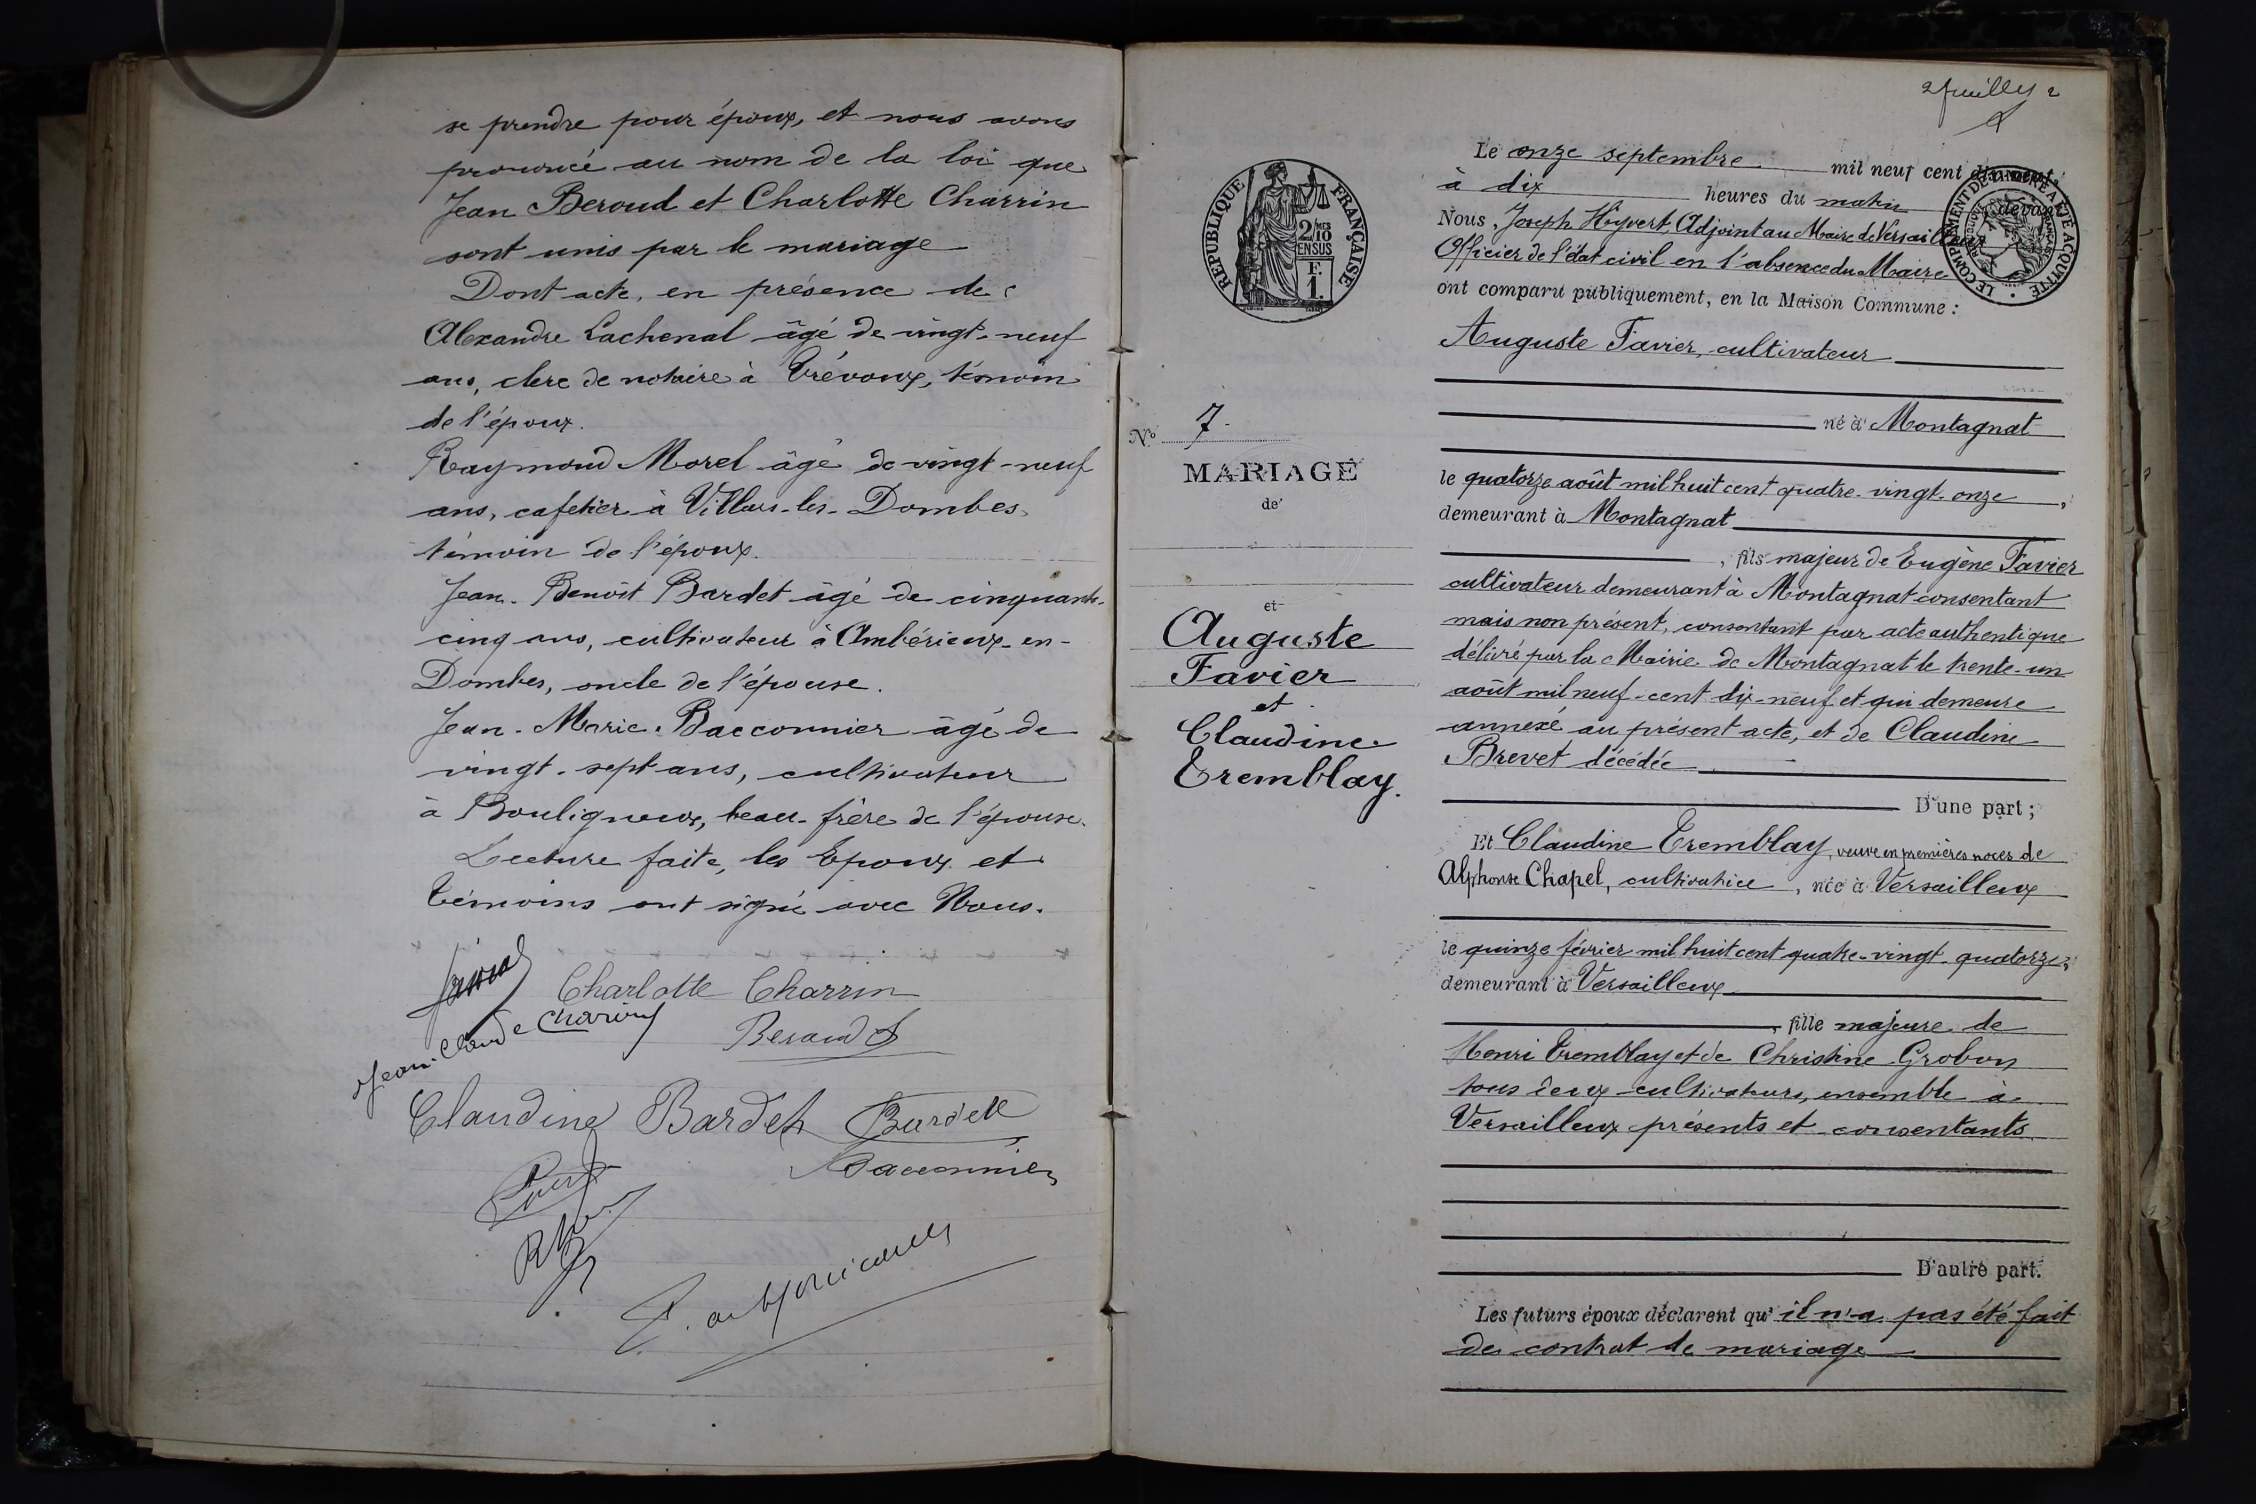 se prendre pour époux, et nous avons
prononcé au nom de la loi que
Jean Beroud et Charlotte Charrin
sont unis par le mariage
Dont acte, en présence de
Alexandre Lachenal âgé de vingt-neuf
ans, clerc de notaire à Trévoux, témoin
de l'époux.
Raymond Morel âgé de vingt-neuf
ans, cafetier à Villars-les-Dombes
témoin de l'époux.
Jean-Benoît Bardet âgé de cinquante-
cinq ans, cultivateur à Ambérieux-en-
Dombes, oncle de l'épouse.
Jean-Marie Bacconnier âgé de
vingt-sept ans, cultivateur
à Bouligneux, beau-frère de l'épouse.
Lecture faite, les Epoux et
témoins ont signé avec Nous.
Charlotte Charrin
Jean Claude Charrin
Beroud
Claudine Bardet Bardet
Bacconnier
2 feuillet 2
REPUBLIQUE FRANÇAISE
2/10 EN SUS
F. 1.
LE COMPLEMENT DE TIMBRE A ÉTÉ ACQUITTÉ
Le onze septembre mil neuf cent dix-neuf,
à dix heures du matin devant
Nous, Joseph Hyvert, Adjoint au Maire de Versailleux
Officier de l'état civil en l'absence du Maire
ont comparu publiquement, en la Maison Commune :
Auguste Favier, cultivateur
né à Montagnat
le quatorze août mil huit cent quatre-vingt-onze,
demeurant à Montagnat
, fils majeur de Eugène Favier
cultivateur demeurant à Montagnat consentant
mais non présent, consentant par acte authentique
délivré par la Mairie de Montagnat le trente-un
août mil neuf-cent dix-neuf et qui demeure
annexé au présent acte, et de Claudine
Brevet décédée
D'une part ;
Et Claudine Tremblay, veuve en premières noces de
Alphonse Chapel, cultivatrice, née à Versailleux
le quinze février mil huit cent quatre-vingt-quatorze,
demeurant à Versailleux
, fille majeure de
Henri Tremblay et de Christine Grobon
tous deux cultivateurs, ensemble à
Versailleux présents et consentants
D'autre part.
Les futurs époux déclarent qu'il n'a pas été fait
de contrat de mariage
N° 7.
MARIAGE
de
et
Auguste
Favier
et
Claudine
Tremblay.